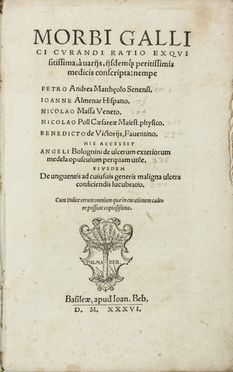 MORBI GALLI
CI CVRANDI RATIO EXQVI
sitissima, à uarijs, ijsdemq́; peritissimis
medicis conscripta: nempe
PETRO Andrea Matthęolo Senensi.
IOANNE Almenar Hispano.
NICOLAO Massa Veneto.
NICOLAO Poll Cæsareæ Maiest. physico.
BENEDICTO de Victorijs, Fauentino.
HIS ACCESSIT
ANGELI Bolognini de ulcerum exteriorum
medela opusculum perquam utile.
EIVSDEM
De unguentis ad cuiusuis generis maligna ulcera
conficiendis lucubratio.
Cum Indice rerum omnium quæ in curationem cade-
re possunt copiosissimo.
PALMA BEB.
Basileæ, apud Ioan. Beb.
D. M. XXXVI.